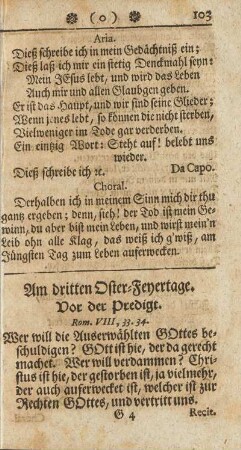 ( o ) 103
Aria.
Dieß schreibe ich in mein Gedächtniß ein;
Dieß laß ich mir ein stetig Denckmahl seyn:
Mein JEsus lebt, und wird das Leben
Auch mir und allen Glaubgen geben.
Er ist das Haupt, und wir sind seine Glieder;
Wenn jenes lebt, so können die nicht sterben,
Vielweniger im Tode gar verderben.
Ein eintzig Wort: Steht auf! belebt uns
wieder.
Dieß schreibe ich ꝛc. Da Capo.
Choral.
Derhalben ich in meinem Sinn mich dir thu
gantz ergeben; denn, sieh! der Tod ist mein Ge-
winn, du aber bist mein Leben, und wirst mein'n
Leib ohn alle Klag, das weiß ich g'wiß, am
Jüngsten Tag zum Leben auferwecken.
Am dritten Oster-Feyertage.
Vor der Predigt.
Rom. VIII, 33. 34.
Wer will die Auserwählten GOttes be-
schuldigen? GOtt ist hie, der da gerecht
machet. Wer will verdammen? Chri-
stus ist hie, der gestorben ist, ja vielmehr,
der auch auferwecket ist, welcher ist zur
Rechten GOttes, und vertritt uns.
G 4 Recit.